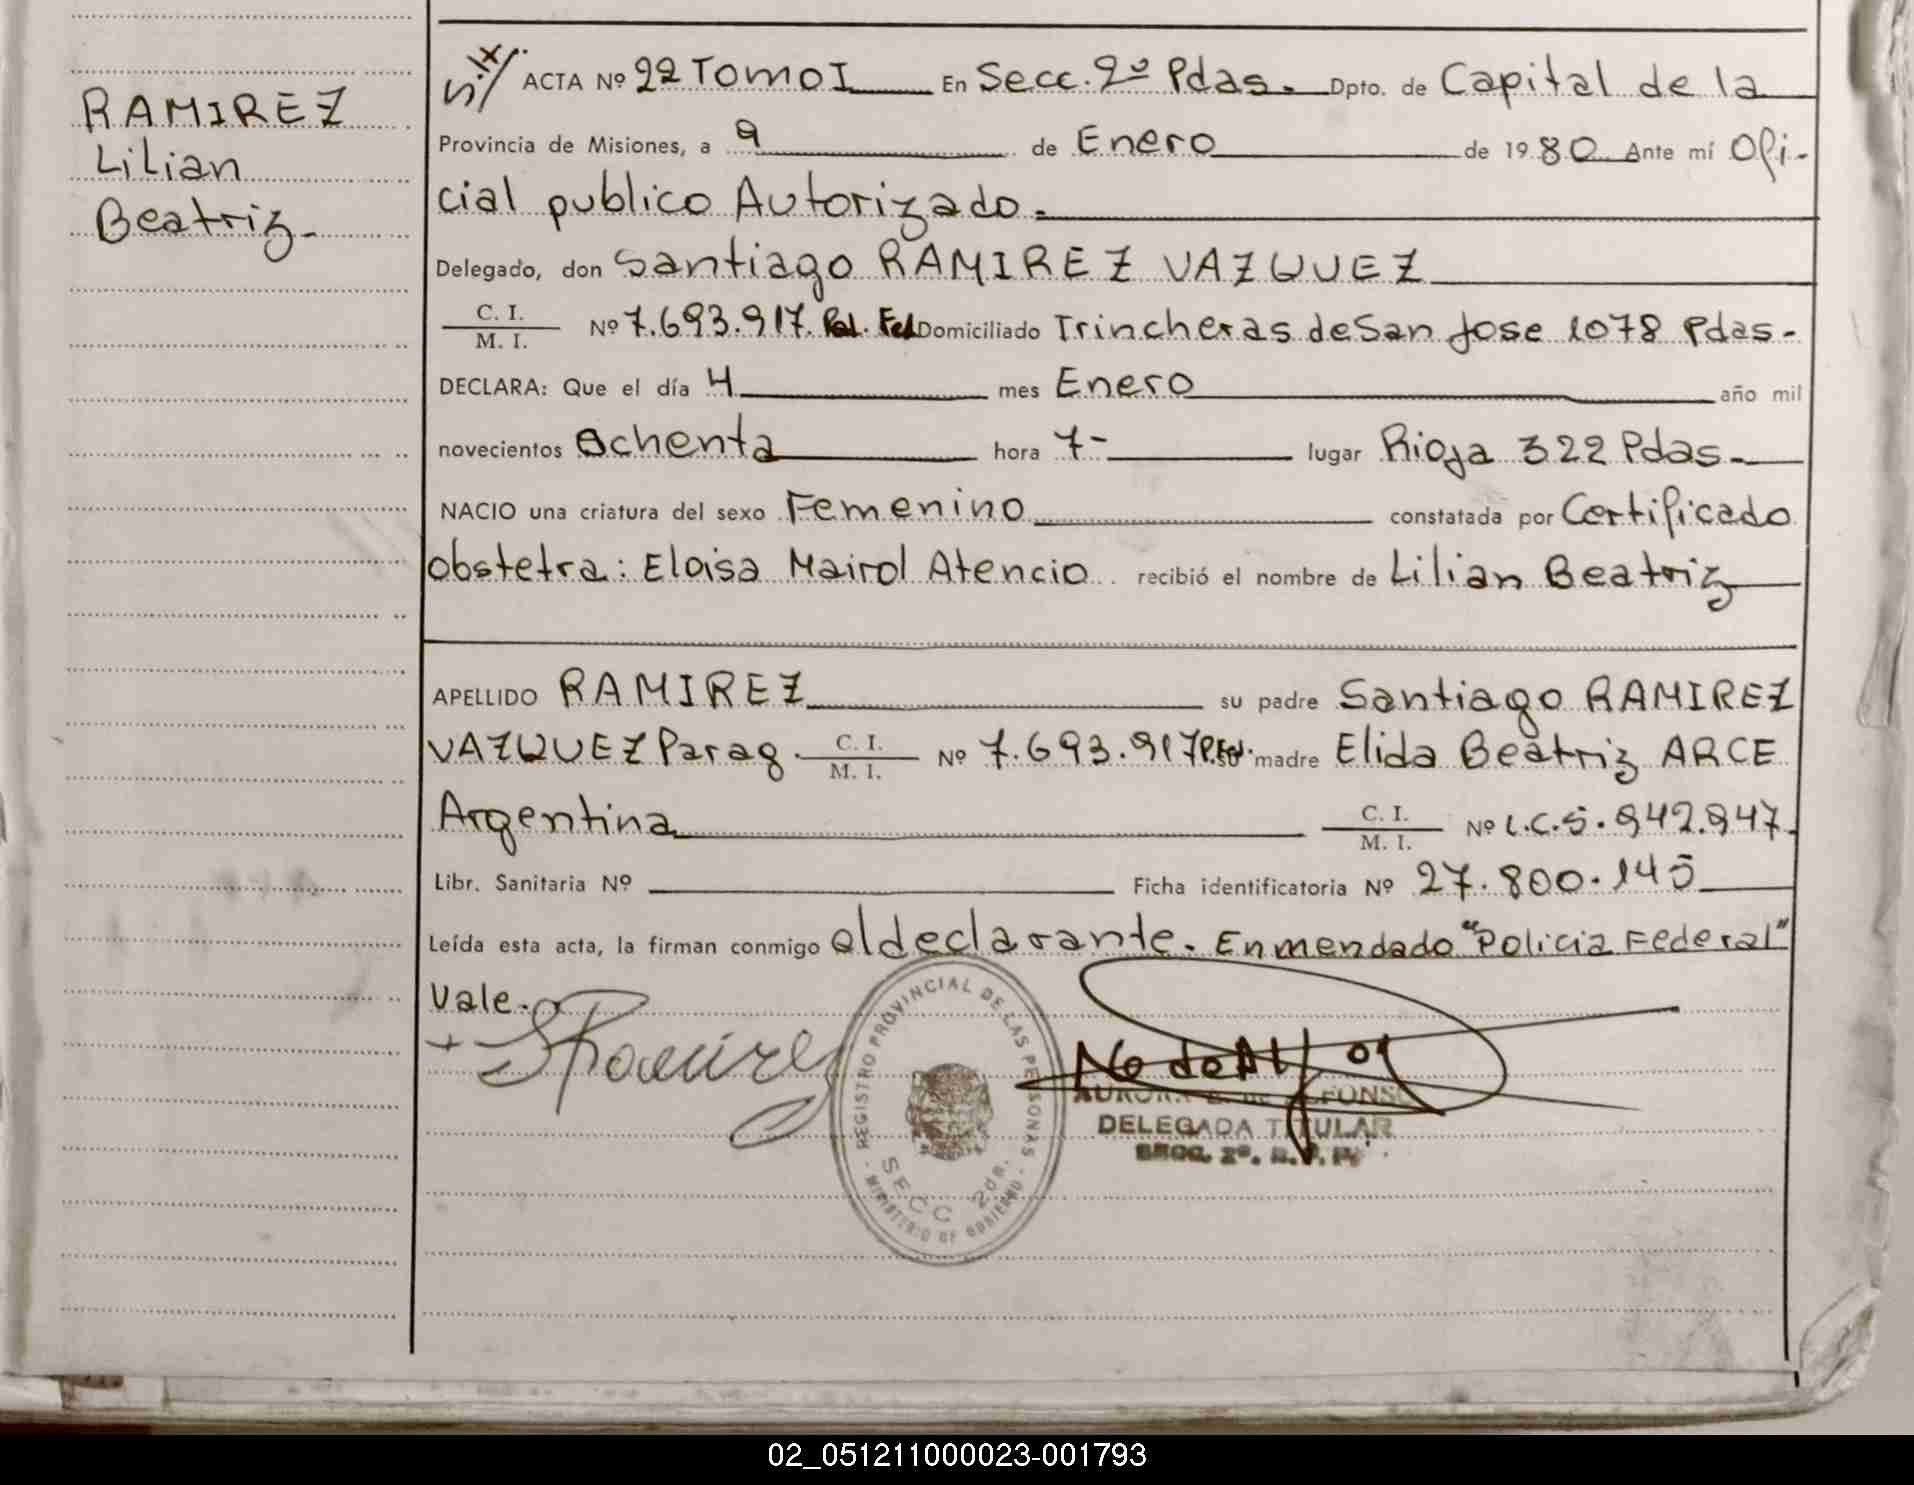 RAMIREZ
Lilian
Beatriz-
ACTA Nº 22 Tomo I En Secc. 2º Pdas. Dpto. de Capital de la
Provincia de Misiones, a 9 de Enero de 1980 Ante mí Ofi-
cial publico Autorizado.
Delegado, don Santiago RAMIREZ VAZQUEZ
C. I. / M. I. Nº 7.693.917. Pol. Fed Domiciliado Trincheras de San Jose 1078 Pdas-
DECLARA: Que el día 4 mes Enero año mil
novecientos Ochenta hora 7- lugar Rioja 322 Pdas-
NACIO una criatura del sexo Femenino constatada por Certificado
obstetra: Eloisa Mairol Atencio recibió el nombre de Lilian Beatriz
APELLIDO RAMIREZ su padre Santiago RAMIREZ
VAZQUEZ Parag. C. I. / M. I. Nº 7.693.917 P.Fed. su madre Elida Beatriz ARCE
Argentina C. I. / M. I. Nº L.C.5.942.947
Libr. Sanitaria Nº Ficha identificatoria Nº 27.800.145
Leída esta acta, la firman conmigo el declarante. Enmendado "Policia Federal"
Vale.
REGISTRO PROVINCIAL DE LAS PERSONAS
SECC 2da.
MINISTERIO DE GOBIERNO
DELEGADA TITULAR
SECC. 2º. R. P. P.
02_051211000023-001793